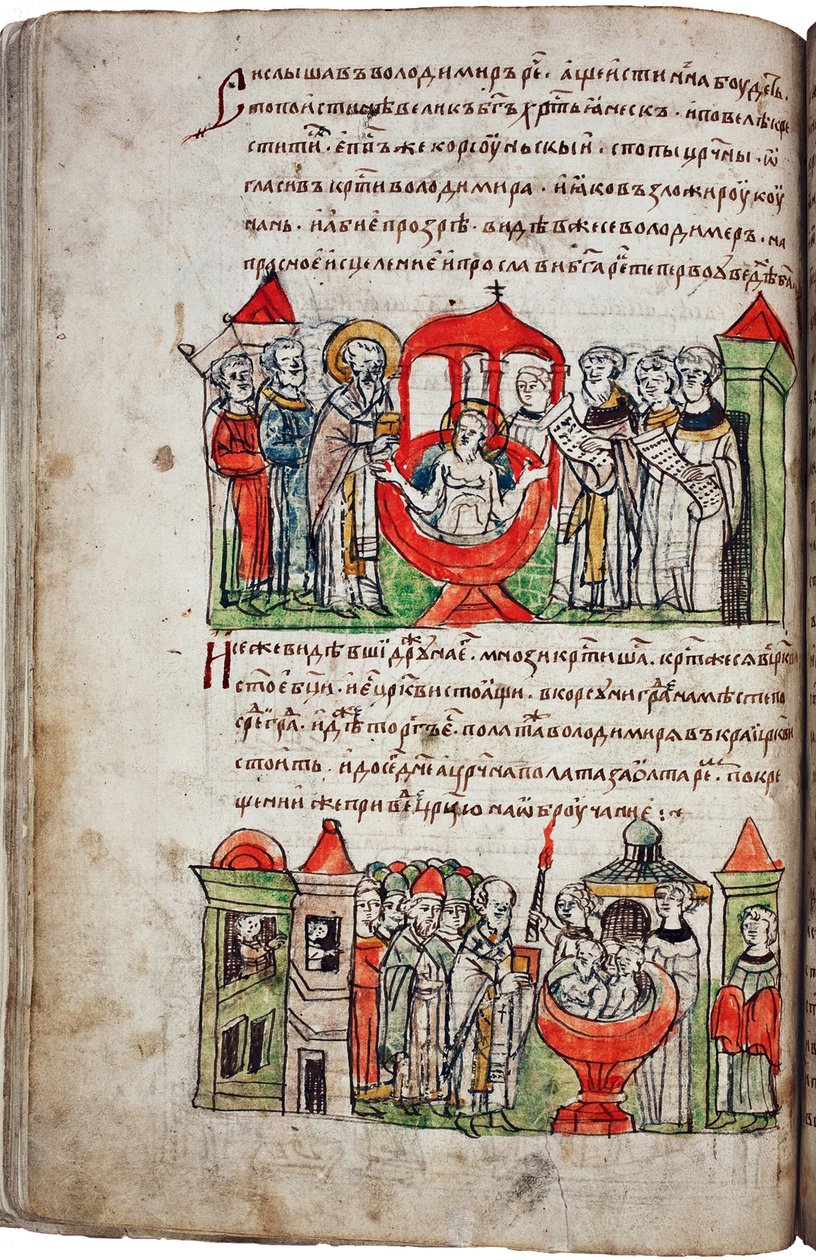 Си слышавъ володимиръ р҃е . а щеи стинна боудеть .
то поистьнѣ великъ бг҃ъ хр҃тьꙗнескъ . и повелѣ кре
стити . еп҃пъ же корсоуньскыи . с попы цр҃чны . ѡ
гласивъ кр҃ти володимира . и ꙗко възложи роукоу
нань . и абие прозрѣ . видѣв же се володимеръ . на
прасное исцеление и прослави бг҃а ре҃ те перво оувѣдѣ б҃а
И се же видѣвши дроужина е҃г . мнози кр҃тишꙗ . кр҃т же ся въ цр҃кви
ст҃ое бц҃и . и е҃ цр҃кви стоꙗщи . в корсуни градѣ на мѣсте по
средѣ град҃а . идѣже торгъ е҃ . полата володимиря въ краи цр҃кви
стоить . и до сег҃ дн҃е а цр҃чна полата за олтаре҃м . по кре
щении же приведе цр҃цю на ѡброучание :~